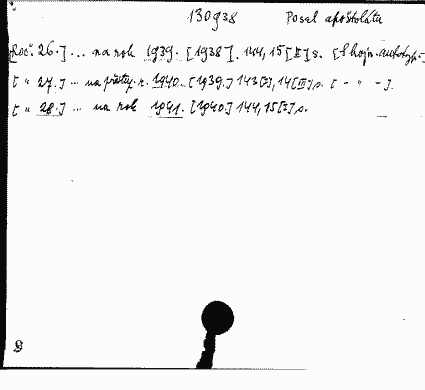 130938 Posel apoštolátu
[Roč. 26.] ... na rok 1939. [1938]. 144, 15 [II] s. [S hojn. autotyp.]
[ " 27.] ... na přestup. r. 1940. [1939.] 143 [I], 14 [II] s. [ - " - ].
[ " 28.] ... na rok 1941. [1940.] 144, 15 [I] s.